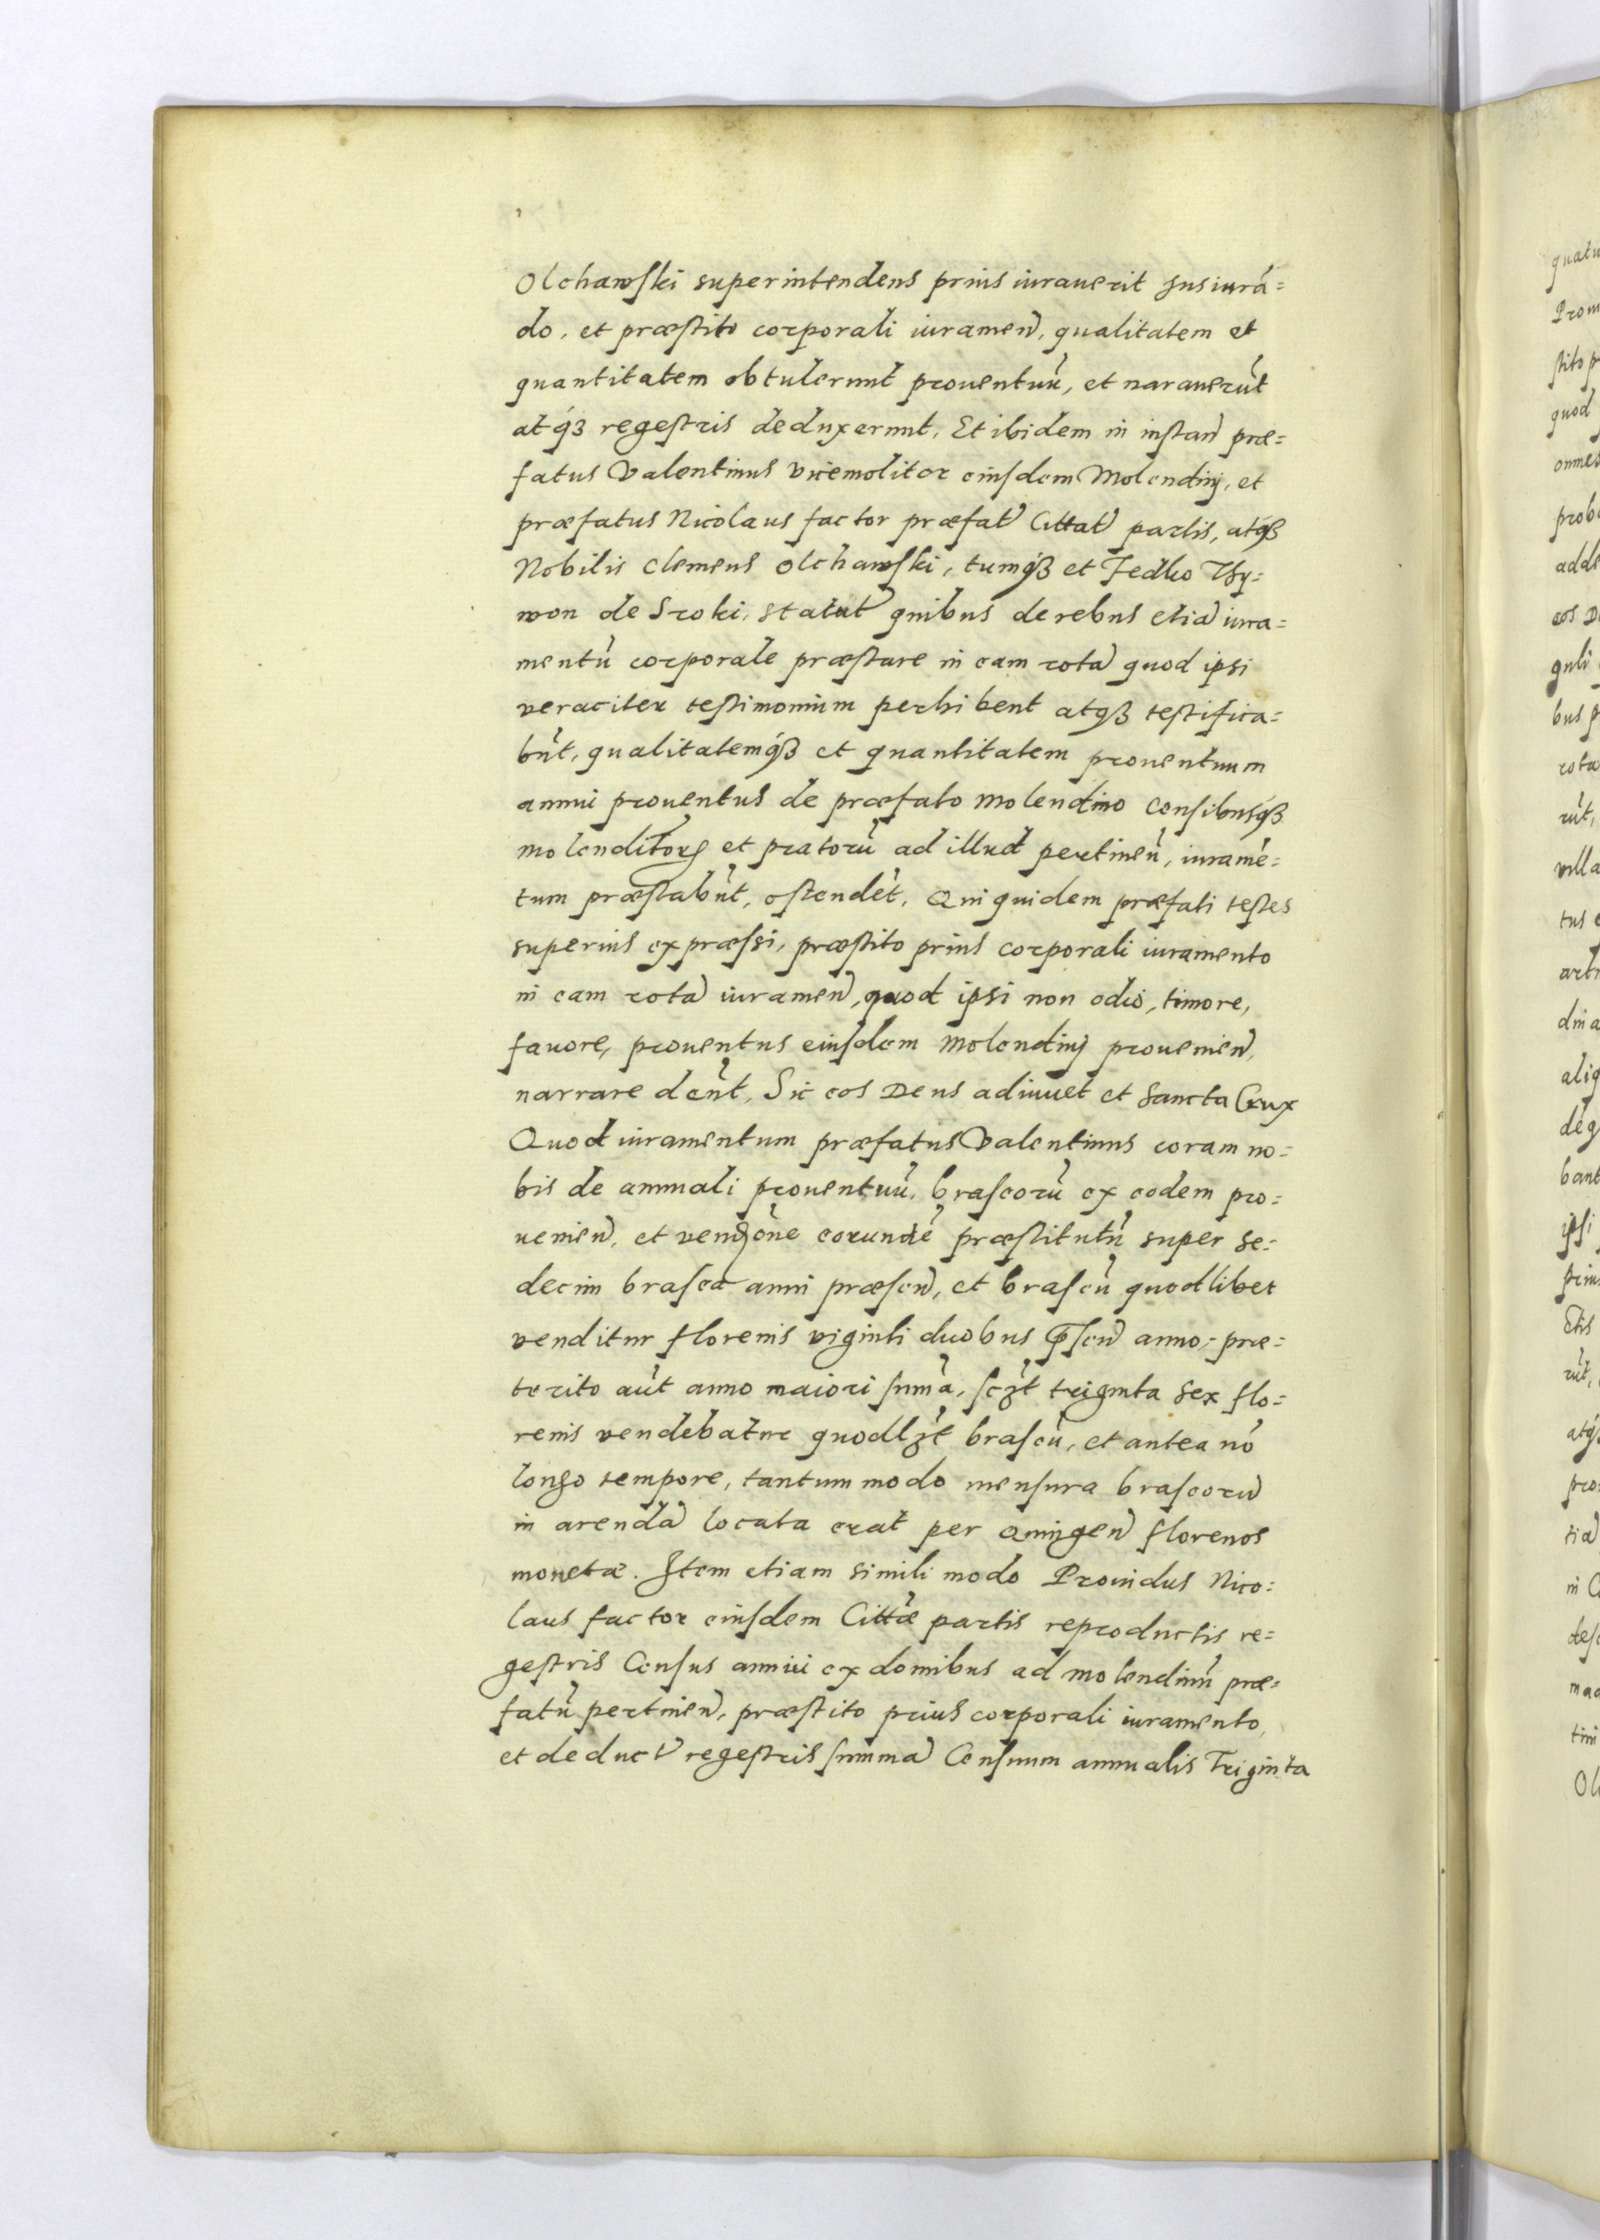 Olchawſki superintendens prius iurauerit Jusiurā=
do, et præſtito corporali iuramen̄, qualitatem et
quantitatem obtulerunt prouentuū, et narauerūt
atq́ꝫ regeſtris deduxerunt, Et ibidem in instan̄ præ=
fatus Valentinus vicemolitor eiuſdem Molendinj, et
præfatus Nicolaus factor præfat̄ Cittat̄ partis, atqꝫ
Nobilis Clemens Olchawſki, tumq́ꝫ et Fedko Thy=
won de Sroki, statut̄ quibus de rebus etiā iura=
mentū corporale præſtare in eam rotā quod ipsi
veraciter teſtimonium perhibent atqꝫ teſtifica=
būt, qualitatemq́ꝫ et quantitatem prouentuum
annui prouentus de præfato molendino Censibusq́ꝫ
molenditorꝝ et pratorū ad illud pertinen̄, iuramē=
tum præſtabūt, oſtendēt. Qui quidem præfati teſtes
superius expræſsi, præſtito prius corporali iuramento
in eam rotā iuramen̄, quod ipsi non odio, timore,
fauore, prouentus eiuſdem Molendinj prouenien̄,
narrare dēnt, Sic eos Deus adiuuet et Sancta Crux
Quod iuramentum præfatus Valentinus coram no=
bis de annuali prouentuū, braſeorū ex eodem pro=
uenien̄, et vendōne eorundē præſtitutū super Se=
decim braſea anni præſen̄, et braſeū quodlibet
venditur florenis viginti duobus p̄ſen̄ anno, præ=
terito aūt anno maiori ſum̄a, ſcꝫt triginta Sex flo=
renis vendebatur quodlꝫt braſeū, et antea nō
longo tempore, tantum modo menſura braſeorū
in arendā locata erat per Quingen̄ florenos
monetæ. Item etiam simili modo Prouidus Nico=
laus factor eiuſdem Cittæ partis reproductis re=
geſtris Cenſus annui ex domibus ad molendinū præ=
fatū pertinen̄, præſtito prius corporali iuramento,
et deduct̄ regeſtris ſummā Cenſuum annualis Triginta